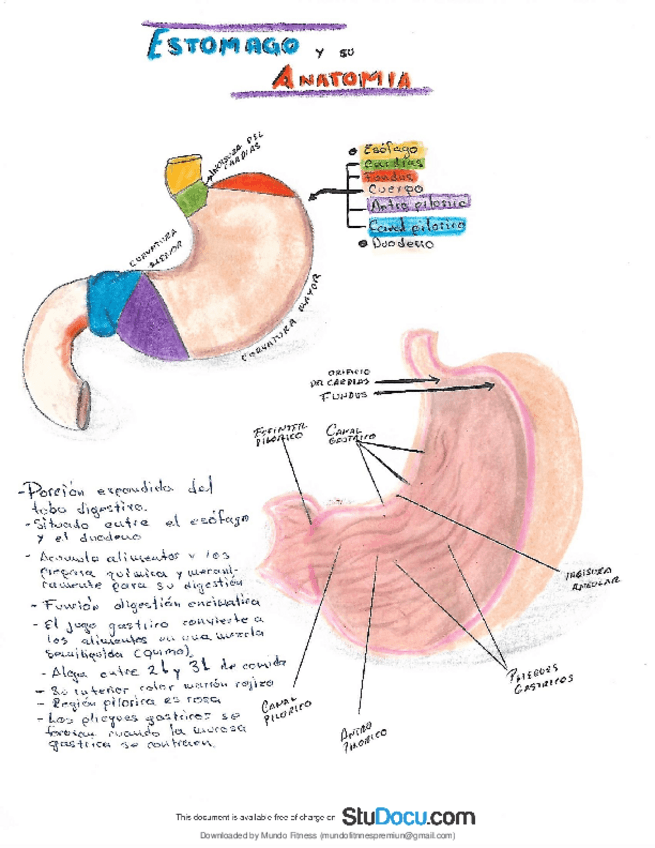 ESTOMAGO Y SU
ANATOMIA
INCISURA DEL
CARDIAS
Esófago
Cardias
Fundus
Cuerpo
Antro pilorico
Canal pilorico
Duodeno
CURVATURA
MENOR
CURVATURA MAYOR
ORIFICIO
DEL CARDIAS
FUNDUS
ESFINTER
PILORICO
CANAL
GASTRICO
INCISURA
ANGULAR
PLIEGUES
GASTRICOS
CANAL
PILORICO
ANTRO
PILORICO
-Porción expandida del
tubo digestivo.
-Situado entre el esófago
y el duodeno
- Acumula alimentos y los
prepara química y mecani-
camente para su digestión
- Función digestión enzimatica
- El jugo gastrico convierte a
los alimentos en una mezcla
semiliquida (quimo).
- Aloja entre 2L y 3L de comida
- Su interior color marrón rojizo
- Región pilorica es rosa
- Los pliegues gastricos se
forman cuando la mucosa
gastrica se contraen.
This document is available free of charge on StuDocu.com
Downloaded by Mundo Fitness (mundofitnnespremiun@gmail.com)